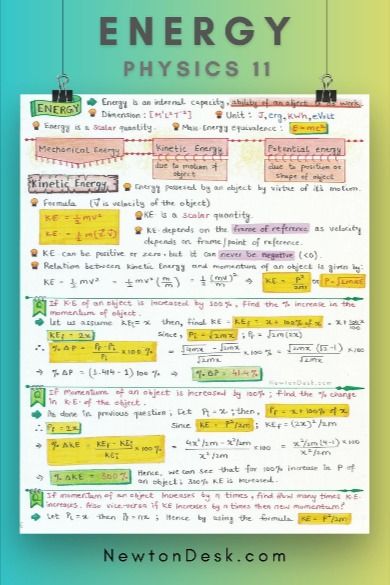 ENERGY
PHYSICS 11
ENERGY ➔ Energy is an internal capacity, ability of an object to do work.
Dimension : [M¹L²T⁻²] Unit : J, erg, kWh, eVolt
Energy is a scalar quantity. Mass-Energy equivalence : E=mc²
Mechanical Energy Kinetic Energy Potential energy
due to motion of object due to position or shape of object
Kinetic Energy Energy possessed by an object by virtue of its motion.
Formula (V⃗ is velocity of the object)
KE = ½ mv² KE is a scalar quantity.
KE = ½ m(V⃗.V⃗) KE depends on the frame of reference as velocity
depends on frame/point of reference.
KE can be positive or zero, but it can never be negative (<0).
Relation between kinetic Energy and momentum of an object is given by:
KE = ½ mv² = ½ mv² (m/m) = ½ (mv)²/m ⇒ KE = P²/2m or P = √2mKE
Q If K.E of an object is increased by 100%, find the % increase in the
momentum of object.
➔ let us assume KEi = x then, find KE = KEf = x + 100% of x = x + 100x/100
KEf = 2x Since, Pi = √2mx ; Pf = √2m(2x)
∴ % ΔP = (Pf - Pi)/Pi x 100 % = (√4mx - √2mx)/√2mx x 100 % = √2mx (√2 - 1)/√2mx x 100
⇒ % ΔP = (1.414 - 1) 100 % ⇒ % ΔP = 41.4%
NewtonDesk.com
Q If Momentum of an object is increased by 100% ; find the % change
in K.E. of the object.
➔ As done in previous question, let Pi = x ; then, Pf = x + 100% of x
∴ Pf = 2x Since KE = P²/2m ; KEf = (2x)²/2m
⇒ % ΔKE = (KEf - KEi)/KEi x 100 % = (4x²/2m - x²/2m)/(x²/2m) x 100 = x²/2m (4-1)/(x²/2m) x 100 %
⇒ % ΔKE = 300% Hence, we can see that for 100% increase in P of
an object; 300% KE is increased.
Q If momentum of an object increases by n times, find how many times K.E.
increases. Also vice-versa if KE increases by n times then new momentum?
➔ let Pi = x then Pf = nx ; Hence by using the formula KE = P²/2m
NewtonDesk.com